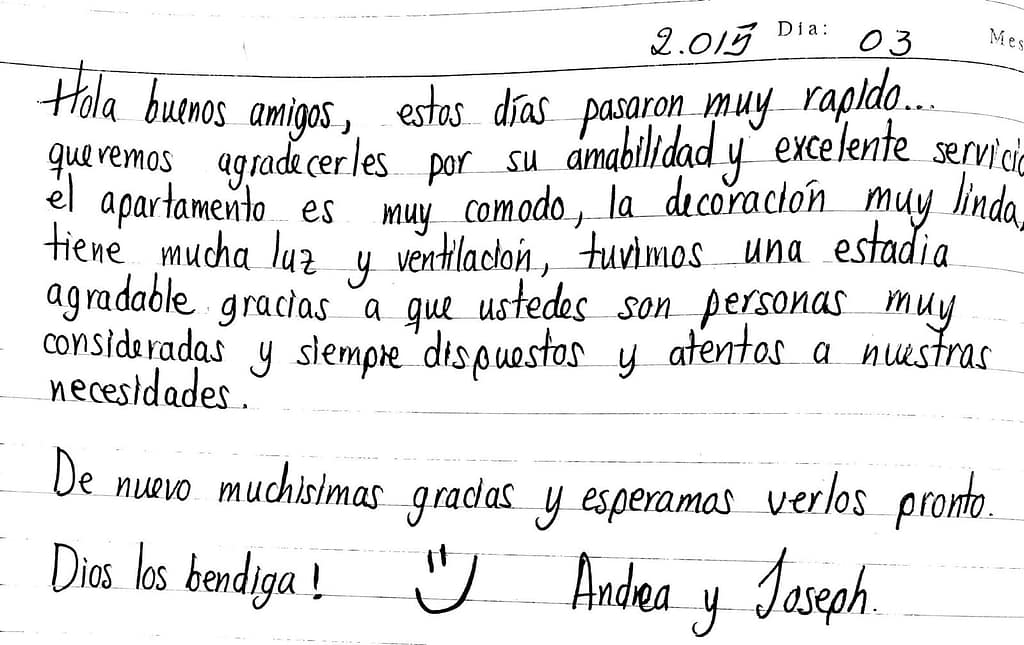 2.015 Dia: 03 Mes
Hola buenos amigos, estos días pasaron muy rapido...
queremos agradecerles por su amabilidad y excelente servicio
el apartamento es muy comodo, la decoración muy linda,
tiene mucha luz y ventilación, tuvimos una estadia
agradable gracias a que ustedes son personas muy
consideradas y siempre dispuestos y atentos a nuestras
necesidades.
De nuevo muchisimas gracias y esperamos verlos pronto.
Dios los bendiga! Andrea y Joseph.